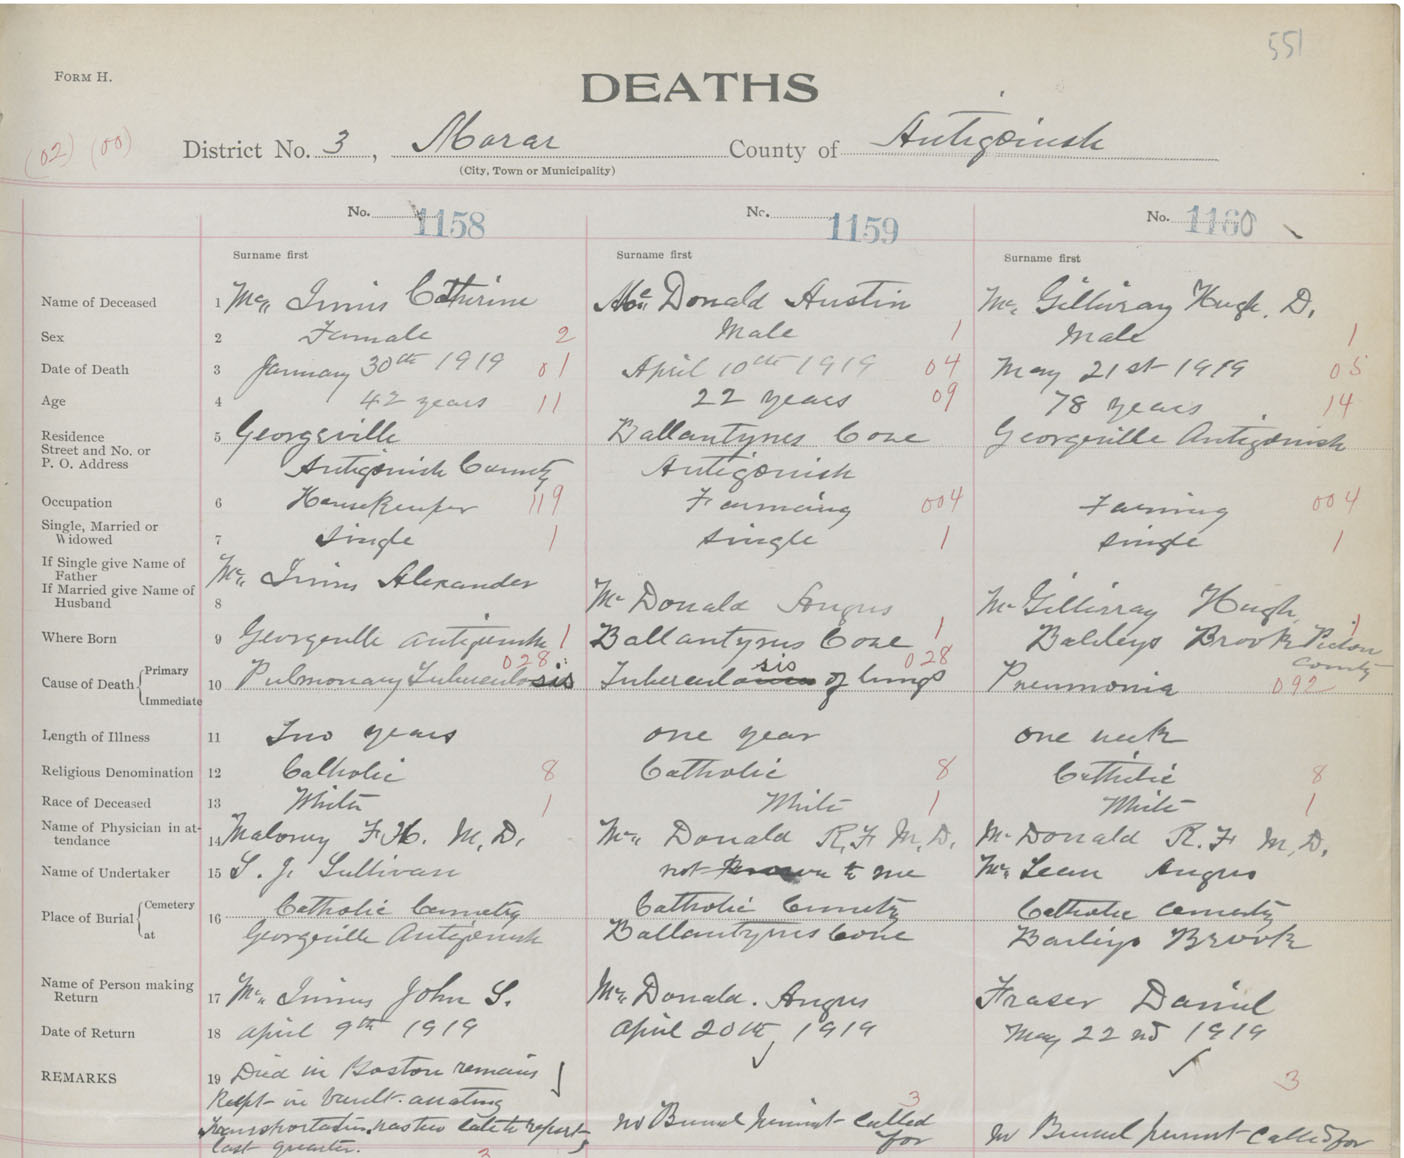 551
FORM H.
DEATHS
(02) (00)
District No. 3, Morar County of Antigonish
(City, Town or Municipality)
No. 1158 No. 1159 No. 1160
Surname first Surname first Surname first
Name of Deceased 1 Mc Innis Catherine Mc Donald Austin Mc Gillivray Hugh. D.
Sex 2 Female 2 Male 1 Male 1
Date of Death 3 January 30th 1919 01 April 10th 1919 04 May 21st 1919 05
Age 4 42 years 11 22 years 09 78 years 14
Residence 5 Georgeville Ballantynes Cove Georgeville Antigonish
Street and No. or
P. O. Address Antigonish County Antigonish
Occupation 6 Housekeeper 119 Farming 004 Farming 004
Single, Married or
Widowed 7 Single 1 Single 1 Single 1
If Single give Name of
Father Mc Innis Alexander
If Married give Name of
Husband 8 Mc Donald Angus Mc Gillivray Hugh
Where Born 9 Georgeville Antigonish 1 Ballantynes Cove 1 Baileys Brook Pictou County 1
Cause of Death { Primary
Immediate 10 Pulmonary Tuberculosis 028 Tuberculosis of lungs 028 Pneumonia 092
Length of Illness 11 Two years one year one week
Religious Denomination 12 Catholic 8 Catholic 8 Catholic 8
Race of Deceased 13 White 1 White 1 White 1
Name of Physician in at-
tendance 14 Maloney F. H. M. D. Mc Donald R. F M. D. Mc Donald R. F M. D.
Name of Undertaker 15 S. J. Sullivan not known to me Mc Lean Angus
Place of Burial { Cemetery 16 Catholic Cemetry Catholic Cemetry Catholic Cemetry
at Georgeville Antigonish Ballantynes Cove Barleys Brook
Name of Person making
Return 17 Mc Innis John S. Mc Donald. Angus Fraser Daniel
Date of Return 18 April 9th 1919 April 20th 1919 May 22nd 1919
REMARKS 19 Died in Boston remains 3
Kept in vault awaiting 3
Transportation was too late to report no Burial permit called for no Burial permit called for
last quarter.